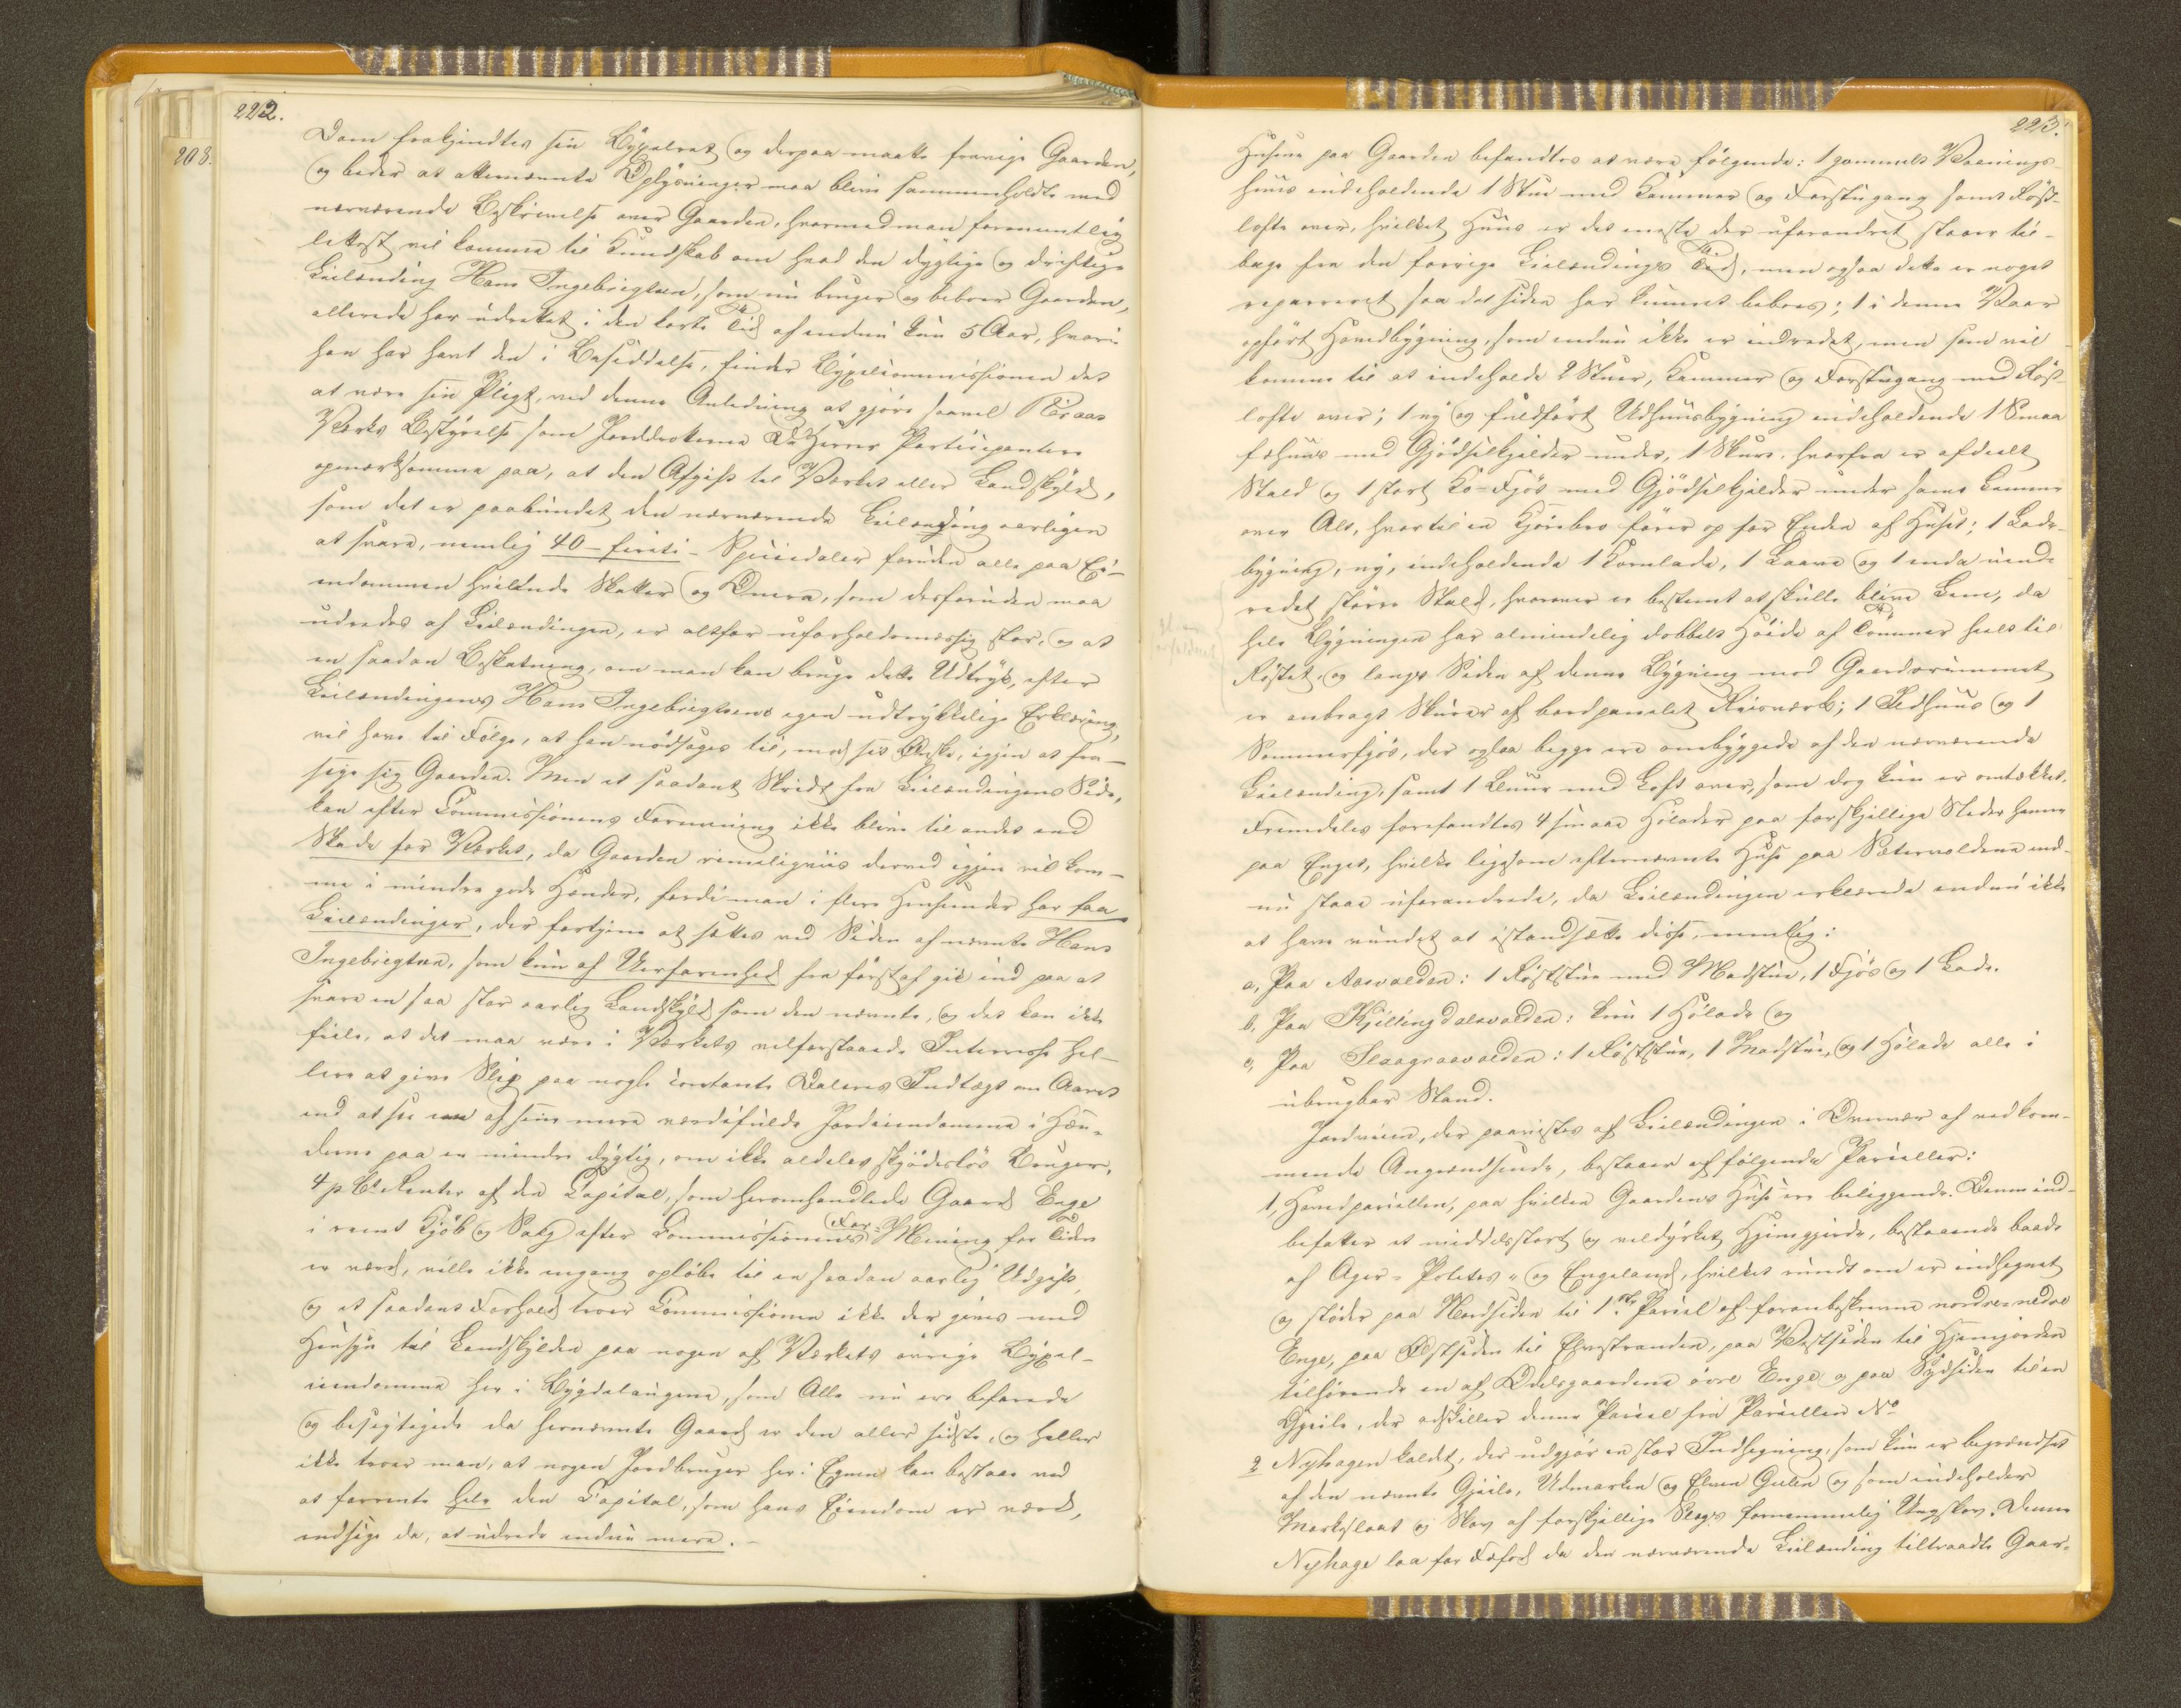 222.
Dom frakjendtes sin Byxelret og derpaa maatte fravige Gaarden,
og beder at atternævnte Oplysninger maa blive sammenholdte med
nærværende Beskrivelse over Gaarden, hvormed man formentlig
lettest vil komme til Kundskab om hvad den dygtige og driftige
Leilænding Hans Ingebrigtsen, som nu bruger og beboer Gaarden,
allerede har udrettet i den korte Tid af endnu kun 5 Aar, hvori
han har havt den i Besiddelse, finder Byxelcommissionen det
at være sin Pligt, ved denne Anledning at gjøre saavel Røraas
Værks Bestyrelse som Jorddrotterne De Herrer Participanter
opmærksomme paa, at den Afgift til Værket eller Landskyld,
som det er paabundet den nærværende Leilænding aarligen
at svare, nemlig 40 - firti - Speciedaler foruden alle paa Ei-
endommen hvilende Skatter og Onera, som desforuden maa
udredes af Leilændingen, er altfor uforholdsmæssig stor, og at
en saadan Beskatning, om man kan bruge dette Udtryk, efter
Leilændingens Hans Ingebrigtsens egen udtrykkelige Erklæring,
vil have til Følge, at han nødsages til, mod sit Ønske, igjen at fra-
sige sig Gaarden. Men et saadant Skridt fra Leilændingens Side,
kan efter Commissionens Formening ikke blive til andet end
Skade for Værket, da Gaarden rimeligviis derved igjen vil kom-
me i mindre gode Hænder, fordi man i flere Henseender har faa
Leilændinger, der fortjene at sættes ved Siden af nævnte Hans
Ingebrigtsen, som kun af Uerfarenhed fra først af gik ind paa at
svare en saa stor aarlig Landskyld som den nævnte, og det kan ikke
feile, at det maa være i Værkets velforstaaede Interesse hel-
lere at give Slip paa nogle contante Dalers Indtægt om Aaret
end at see een af sine mere værdifulde Jordeiendomme i Hæn-
derne paa en mindre dygtig, om ikke aldeles skjødesløs Bruger.
4 p Ct. Renter af den Capital, som heromhandlede Gaard Enge
i reent Kjøb og Salg efter Commissionens (For-) Mening for Tiden
er værd, ville ikke engang opløbe til en saadan aarlig Udgift,
og et saadant Forhold troer Commissionen ikke der gives med
Hensyn til Landskylden paa nogen af Værkets øvrige Byxel-
eiendomme her i Bygdelaugene, som Alle nu ere befarede
og besigtigede da hernævnte Gaard er den aller sidste, og heller
ikke troer man, at nogen Jordbruger her i Egnen kan bestaae ved
at forrente hele den Capital, som hans Eiendom er værd,
endsige da, at udrede endnu mere.
208.
223.
Husene paa Gaarden befandtes at være følgende: 1 gammelt Vaanings-
huus indeholdende 1 Stue med Kammer og Forstugang samt Røst-
lofte over, hvilket Huus er det eneste der uforandret staaer til-
bage fra den forrige Leilændings Tid, men ogsaa dette er noget
repareret saa det siden har kunnet beboes; 1 i denne Vaar
opført Hovedbygning, som endnu ikke er indredet, men som vil
komme til at indeholde 2 Stuer, Kammer og Forstugang med Røst-
lofte over; 1 ny og fuldført Udhuusbygning indeholdende 1 Smaa
fæhuus med Gjødselkjelder under, 1 Skure, hvorfra er afdeelt
Stald og 1 stort Ko-Fjøs med Gjødselkjelder under samt Lemme
over Alt, hvortil en Kjørebro fører op for Enden af Huset; 1 Lade-
bygning, ny, indeholdende 1 Kornlade, 1 Laave og 1 enda uind-
redet større Stald, hvorover er bestemt at skulle blive Lem, da
hele Bygningen har almindelig dobbelt Høide af Tømmer heelt til
Røstet, og langs Siden af denne Bygning mod Gaardsrummet
er anbragt Skurer af bordpanelet Reisværk; 1 Ildhuus og 1
Sommerfjøs, der ogsaa begge ere ombyggede af den nærværende
Leilænding, samt 1 Buur med Loft over, som dog kun er omtækket.
Fremdeles forefandtes 4 smaae Hølader paa forskjellige Steder henne
paa Enget, hvilke ligesom efternævnte Huse paa Sætervoldene end-
nu staae uforandrede, da Leilændingen erklærede endnu ikke
at have vundet at istandsætte disse, nemlig:
a, Paa Aasvolden: 1 Røststue med Madstue, 1 Fjøs og 1 Lade.
b, Paa Kjillingdalsvolden: kun 1 Hølade og
c, Paa Slaagraavolden: 1 Røststue, 1 Madstue, og 1 Hølade alle i
ubrugbar Stand.
Jordveien, der paavistes af Leilændingen i Overvær af vedkom-
mende Angrændsende, bestaaer af følgende Parceller:
1, Hovedparcellen, paa hvilken Gaardens Huse ere beliggende. Denne ind-
befatter et middelsstort og veldyrket Hjemgjerde, bestaaende baade
af Ager- Potetes- og Engeland, hvilket rundt om er indhegnet
og støder paa Nordsiden til 1ste Parcel af foranbeskrevne nordre nedre
Enge, paa Østsiden til Elvestranden, paa Vestsiden til Hjemjorden
tilhørende en af Odelsgaardene øvre Enge og paa Sydsiden til en
Gjeile, der adskiller denne Parcel fra Parcellen No
2 Nyhagen kaldet, der udgjør en stor Indhegning, som kun er begrændset
af den nævnte Gjeile, Udmarken og Elven Gulen og som indeholder
Markeslaat og Skov af forskjellige Slags fornemmelig Ungskov. Denne
Nyhage laa for Fæfod da den nærværende Leilænding tiltraadte Gaar-